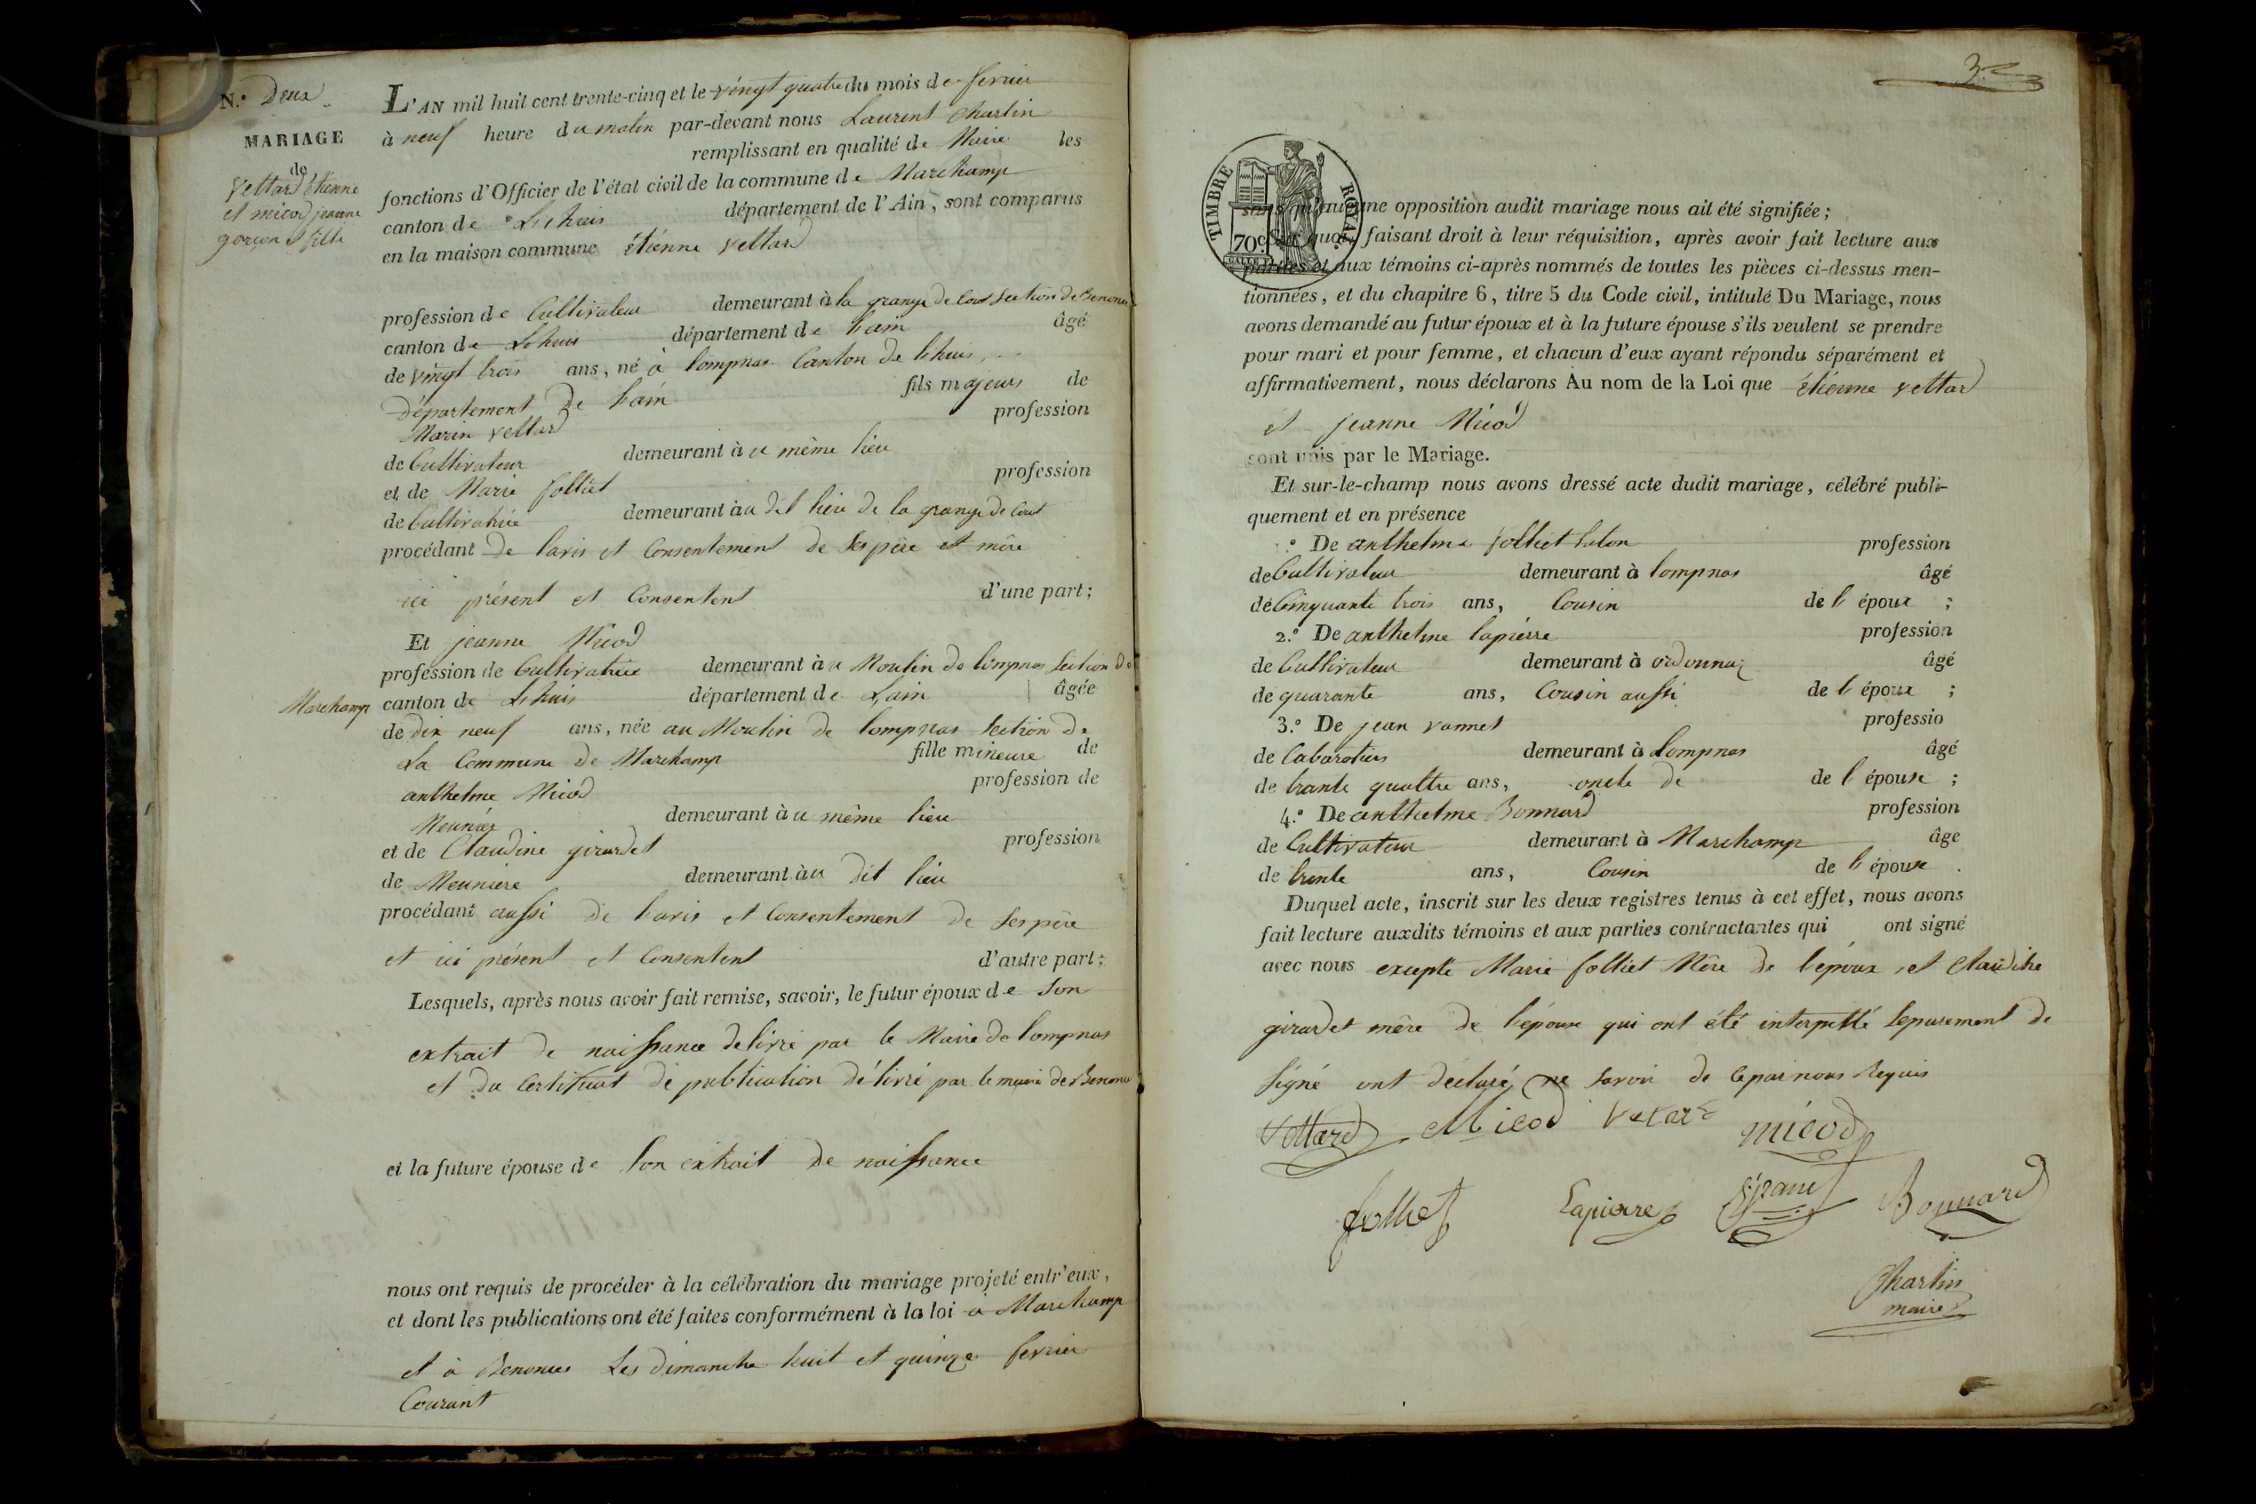 N.° Deux
MARIAGE
de
Vettard étienne
et micod jeanne
garçon et fille
L'AN mil huit cent trente-cinq et le vingt quatre du mois de fevrier
à neuf heure du matin par-devant nous Laurent Charlin
remplissant en qualité de Maire les
fonctions d'Officier de l'état civil de la commune de Marchamp
canton de Lhuis département de l'Ain, sont comparus
en la maison commune étienne vettard
profession de Cultivateur demeurant à la grange de Cour Section de Benonce
canton de Lhuis département de l'ain âgé
de vingt trois ans, né à lompnas Canton de lhuis,
département de l'ain fils majeur de
Marin vettard profession
de Cultivateur demeurant à u même lieu
et de Marie folliet profession
de Cultivatrice demeurant à u dit lieu de la grange de Cour
procédant de l'avis et Consentement de ses père et mère
ici présent et Consentent d'une part;
Et jeanne Micod
profession de Cultivatrice demeurant à u Moulin de lompnas Section de
Marchamp canton de Lhuis département de L'ain âgée
de dix neuf ans, née au Moulin de lompnas Section de
La Commune de Marchamp fille mineure de
anthelme Micod profession de
Meunier demeurant à u même lieu
et de Claudine girardet profession
de Meunière demeurant à u dit lieu
procédant aussi de l'avis et Consentement de ses père
et ici présent et Consentent d'autre part;
Lesquels, après nous avoir fait remise, savoir, le futur époux de Son
extrait de naissance délivré par le Maire de lompnas
et du Certificat de publication délivré par le maire de Benonce
et la future épouse de Son extrait de naissance
nous ont requis de procéder à la célébration du mariage projeté entr'eux,
et dont les publications ont été faites conformément à la loi à Marchamp
et à Benonces Les dimanche huit et quinze fevrier
Courant
3
TIMBRE ROYAL
70 c.
sans qu'aucune opposition audit mariage nous ait été signifiée;
Sur quoi, faisant droit à leur réquisition, après avoir fait lecture aux
parties et aux témoins ci-après nommés de toutes les pièces ci-dessus men-
tionnées, et du chapitre 6, titre 5 du Code civil, intitulé Du Mariage, nous
avons demandé au futur époux et à la future épouse s'ils veulent se prendre
pour mari et pour femme, et chacun d'eux ayant répondu séparément et
affirmativement, nous déclarons Au nom de la Loi que étienne vettard
et jeanne Micod
sont unis par le Mariage.
Et sur-le-champ nous avons dressé acte dudit mariage, célébré publi-
quement et en présence
.° De anthelme folliet profession
de Cultivateur demeurant à lompnas âgé
de Cinquante trois ans, Cousin de l'époux ;
2.° De anthelme lapierre profession
de Cultivateur demeurant à ordonnaz âgé
de quarante ans, Cousin aussi de l'époux ;
3.° De jean vannet professio
de Cabaretier demeurant à Lompnas âgé
de trante quattre ans, oncle de de l'épouse ;
4.° De anthelme Bonnard profession
de Cultivateur demeurant à Marchamp âge
de trente ans, Cousin de l'épouse .
Duquel acte, inscrit sur les deux registres tenus à cet effet, nous avons
fait lecture auxdits témoins et aux parties contractantes qui ont signé
avec nous excepté Marie folliet Mère de l'époux, et Claudine
girardet mère de l'épouse qui ont été interpellé séparement de
Signé ont déclaré ne savoir de ce par nous Requis
Vettard Micod Vetard micod
folliet Lapierre Bonnard
Charlin
maire